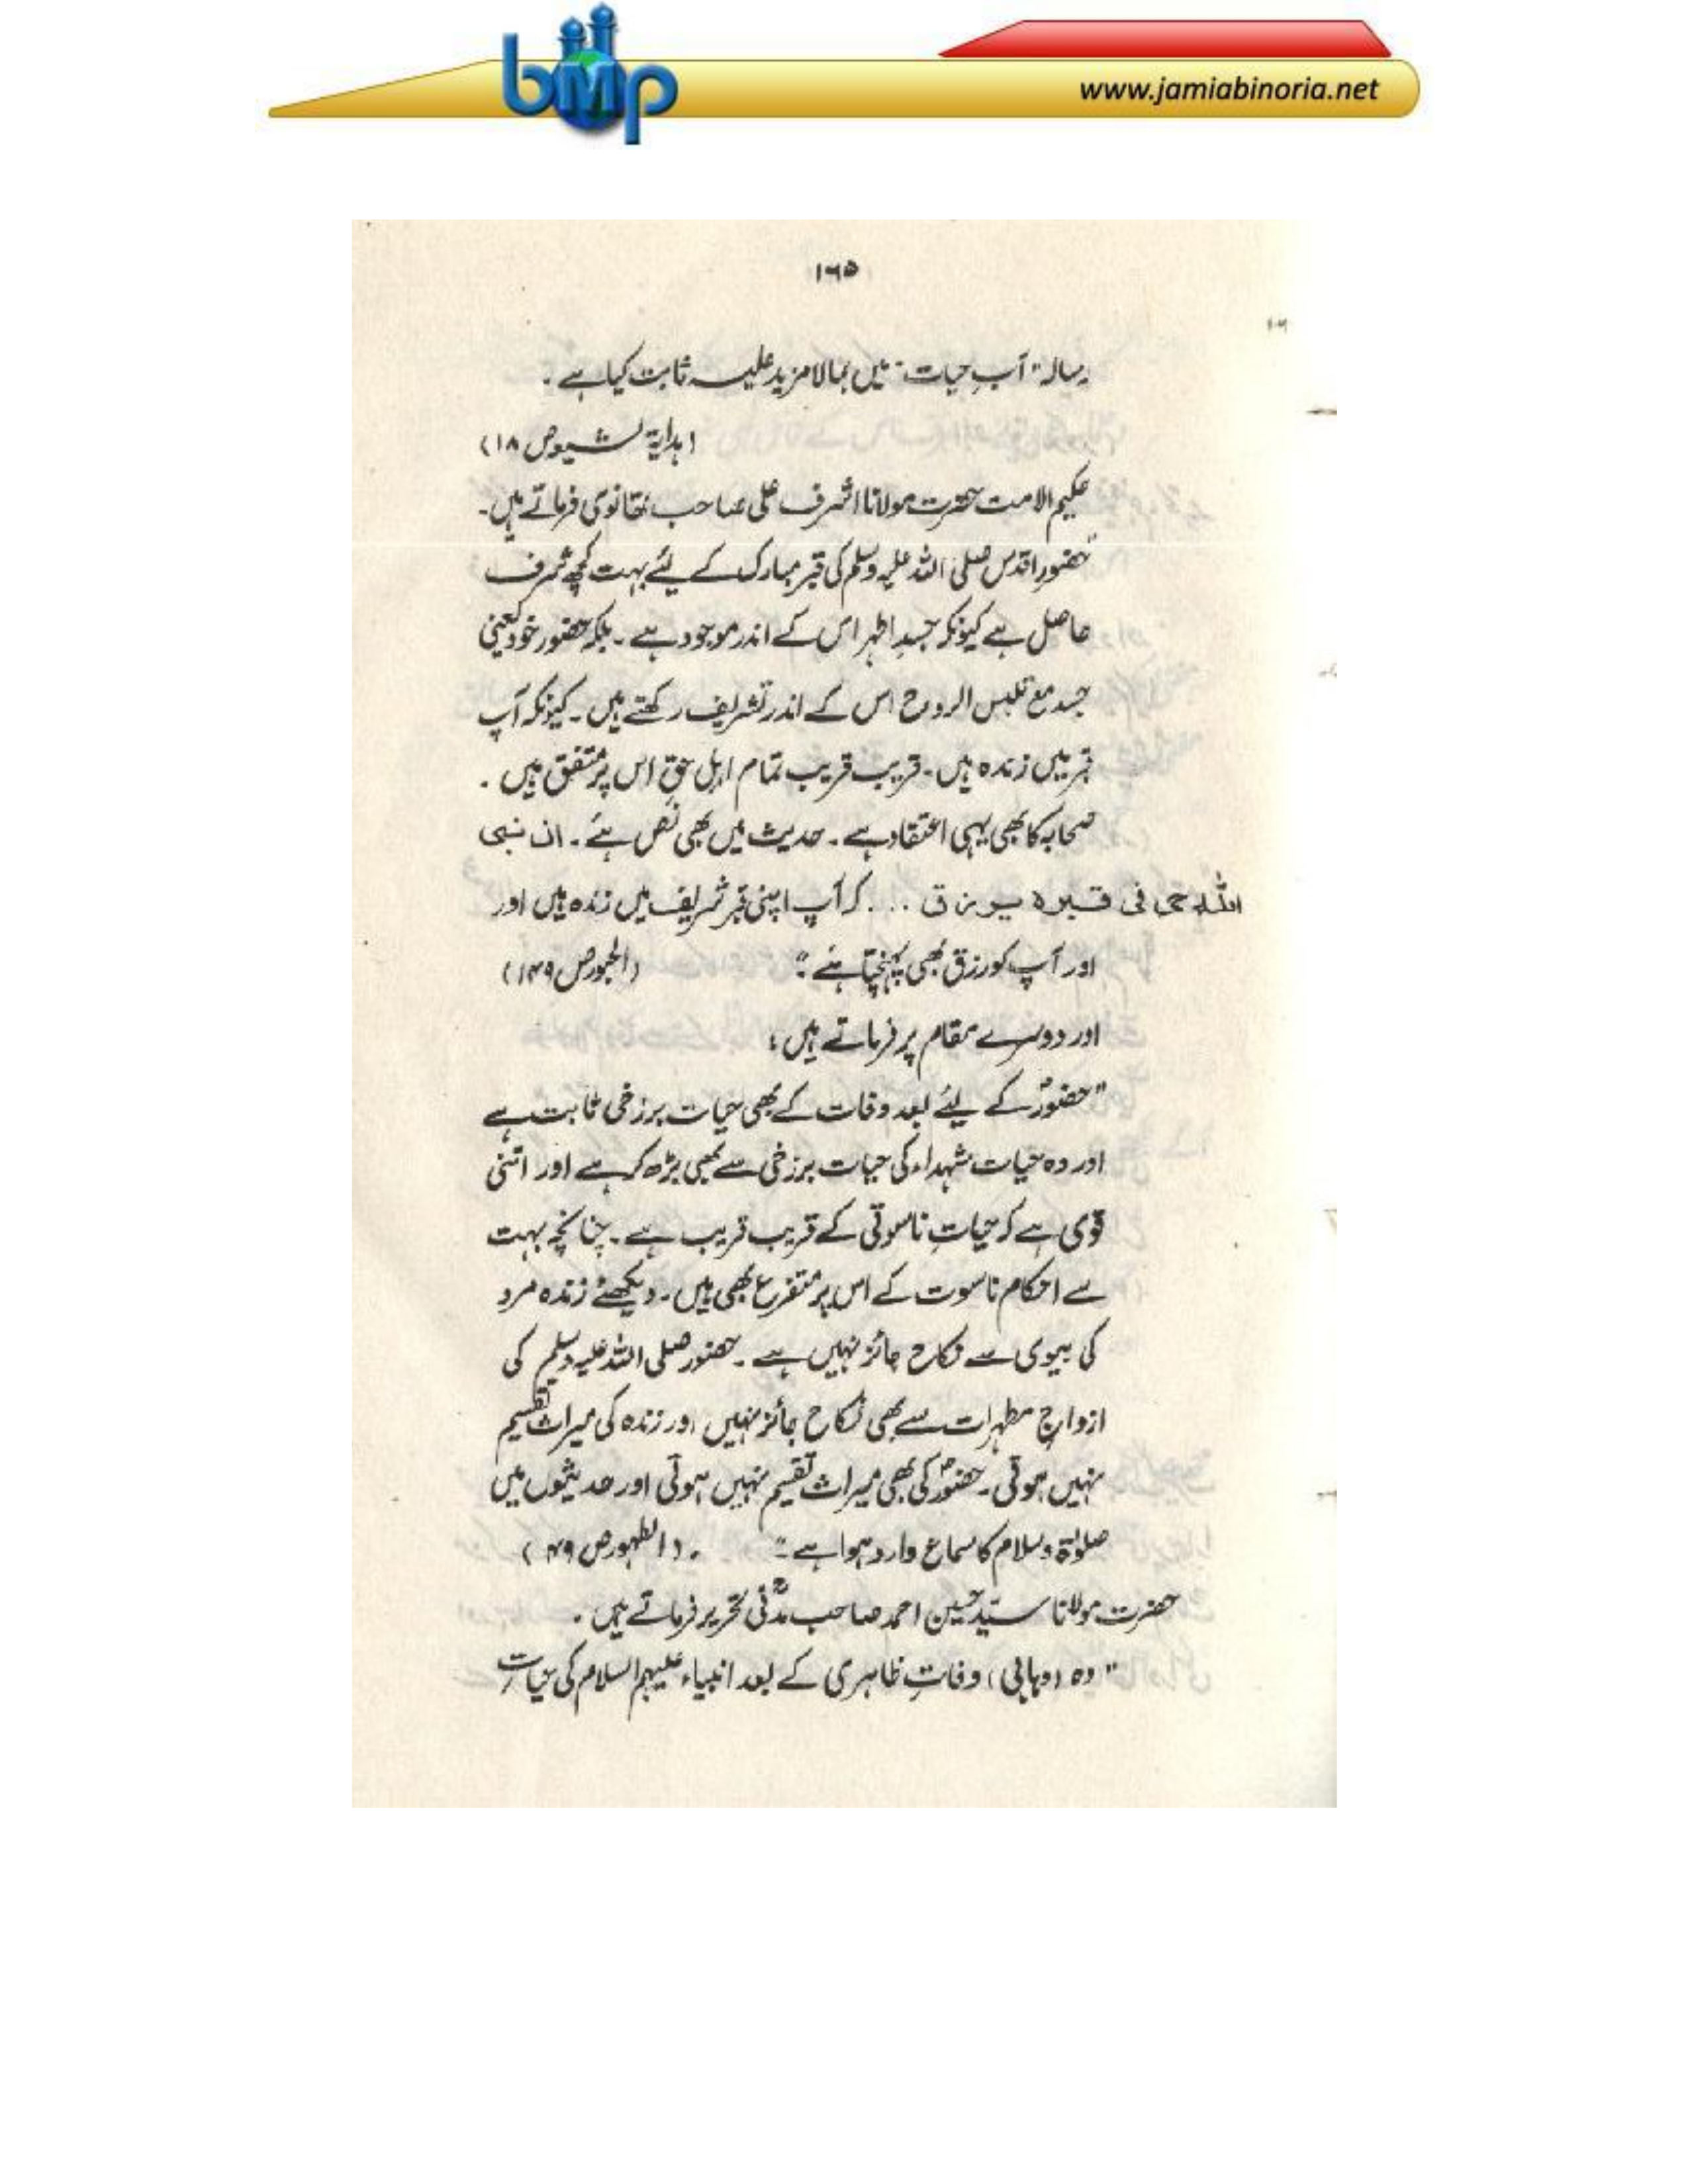 bmp
www.jamiabinoria.net
۱۶۵
رسالہ "آبِ حیات" میں بمالا مزید علیہ ثابت کیا ہے ۔
(ہدایۃ الشیعہ ص ۱۸)
حکیم الامت حضرت مولانا اشرف علی صاحب تھانوی فرماتے ہیں۔
"حضور اقدس صلی اللہ علیہ وسلم کی قبر مبارک کے لئے بہت کچھ شرف
حاصل ہے کیونکہ جسدِ اطہر اس کے اندر موجود ہے ۔ بلکہ حضور خود یعنی
جسد مع تلبس الروح اس کے اندر تشریف رکھتے ہیں ۔ کیونکہ آپ
قبر میں زندہ ہیں ۔ قریب قریب تمام اہل حق اس پر متفق ہیں ۔
صحابہ کا بھی یہی اعتقاد ہے ۔ حدیث میں بھی نص ہے ۔ ان نبی
اللہ حی فی قبرہ یرزق ... کہ آپ اپنی قبر شریف میں زندہ ہیں اور
اور آپ کو رزق بھی پہنچتا ہے " (الحبور ص ۱۴۹)
اور دوسرے مقام پر فرماتے ہیں :
"حضورؐ کے لئے بعد وفات کے بھی حیات برزخی ثابت ہے
اور وہ حیات شہداء کی حیات برزخی سے بھی بڑھ کر ہے اور اتنی
قوی ہے کہ حیاتِ ناسوتی کے قریب قریب ہے ۔ چنانچہ بہت
سے احکام ناسوت کے اس پر متفرع بھی ہیں ۔ دیکھئے زندہ مرد
کی بیوی سے نکاح جائز نہیں ہے ۔ حضور صلی اللہ علیہ وسلم کی
ازواجِ مطہرات سے بھی نکاح جائز نہیں اور زندہ کی میراث تقسیم
نہیں ہوتی ۔ حضورؐ کی بھی میراث تقسیم نہیں ہوتی اور حدیثوں میں
صلوٰۃ و سلام کا سماع وارد ہوا ہے " ۔ (الطہور ص ۴۹)
حضرت مولانا سیّد حسین احمد صاحب مدنیؒ تحریر فرماتے ہیں ۔
"وہ (وہابی) وفاتِ ظاہری کے بعد انبیاء علیہم السلام کی حیاتِ